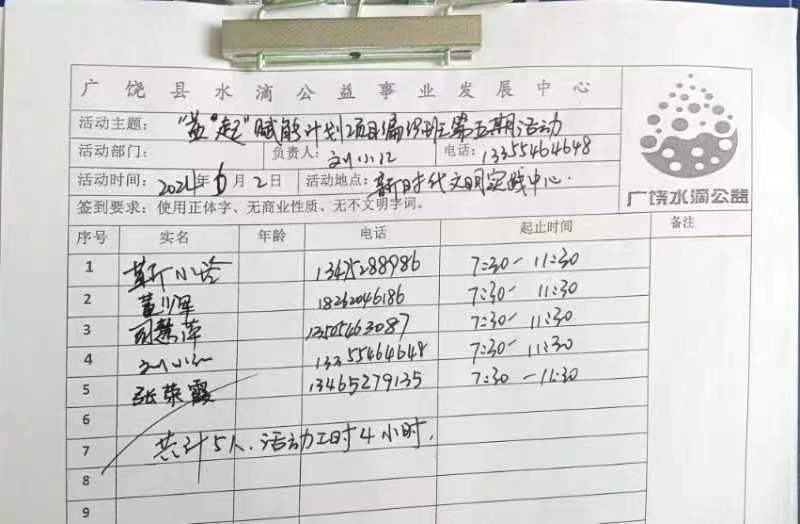 广饶县水滴公益事业发展中心
活动主题："益"起"赋能计划项目编织班第五期活动
活动部门： 负责人：刘小江 电话：13355464648
活动时间：2021年 月2日 活动地点：新时代文明实践中心.
签到要求：使用正体字、无商业性质、无不文明字词。
广饶水滴公益
序号 实名 年龄 电话 起止时间 备注
1 小 13475288986 7:30-11:30
2 董 18262046186 7:30-11:30
3 萍 13505463087 7:30-11:30
4 刘小江 13355464648 7:30-11:30
5 张荣霞 13465279135 7:30-11:30
6
7 共计5人.活动工时4小时.
8
9